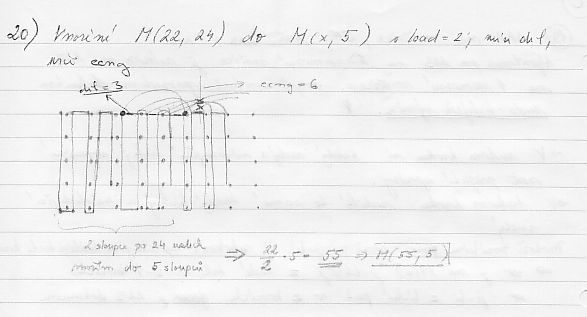 20) Vnoření M(22, 24) do M(x, 5) s load=2, min dil,
min ecng
dil=3
ecng=6
2 sloupce po 24 uzlech
vnořím do 5 sloupců
⇒ 22/2 · 5 = 55 ⇒ M(55, 5)